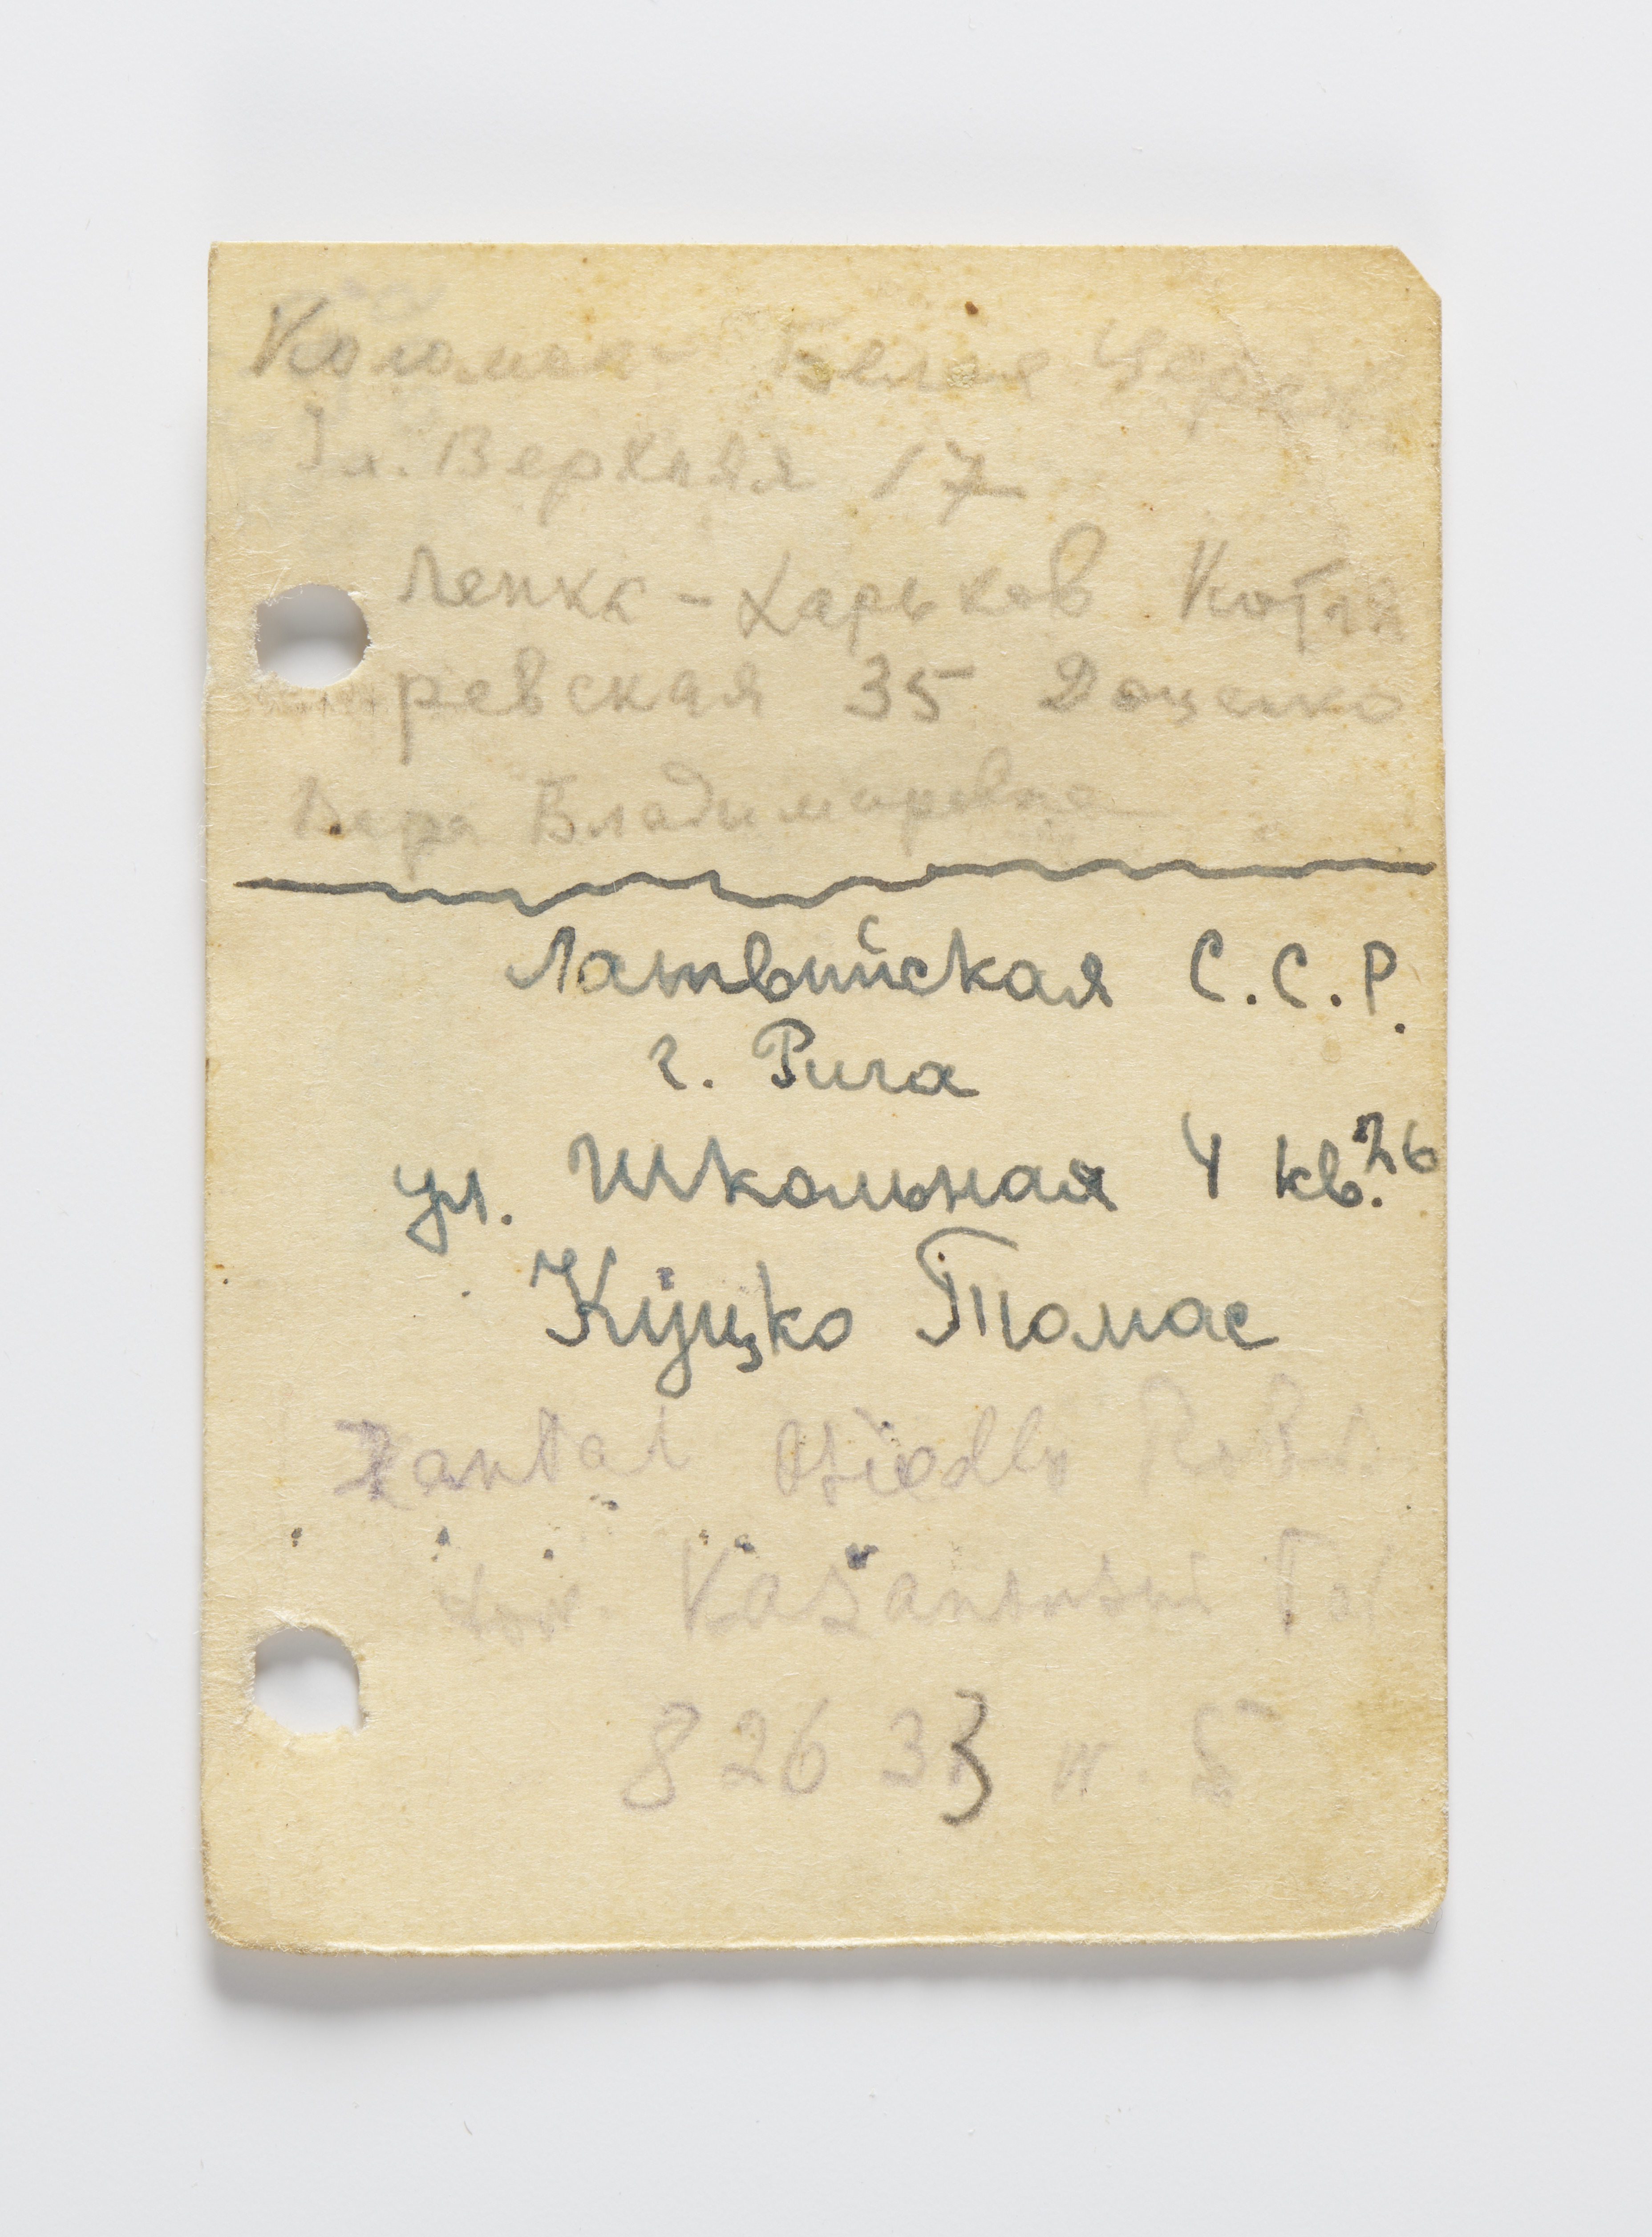 Белая Церковь
Ул. Верхняя 17
Ленка - Харьков Котля
ревская 35 Доценко
Вера Владимировна
Латвийская С.С.Р.
г. Рига
ул. Школьная 4 кв. 26
Куцко Томас
Osiedle
82633 5